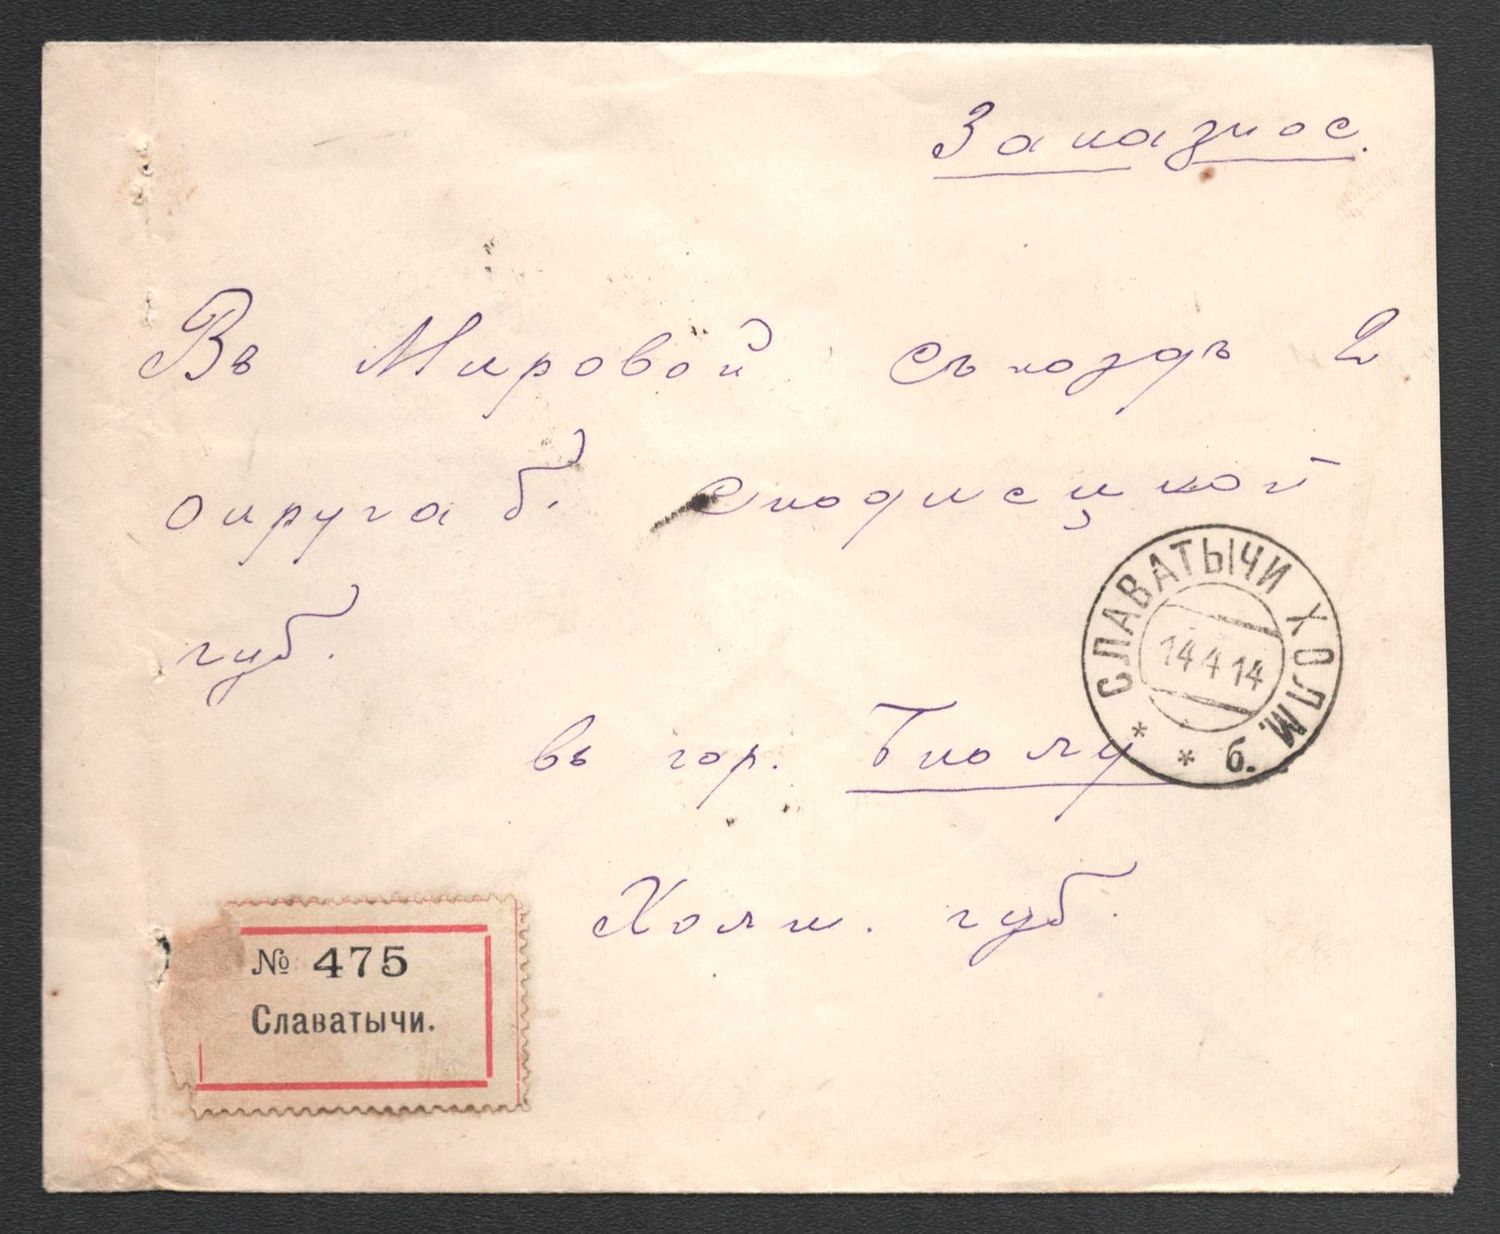 Заказное.
Въ Мировой Съѣздъ 2
округа б. Сѣдлецкой
губ.
въ гор. Бѣлу
Холм. губ.
СЛАВАТЫЧИ ХОЛМ.
14 4 14
* * б.
№ 475
Славатычи.